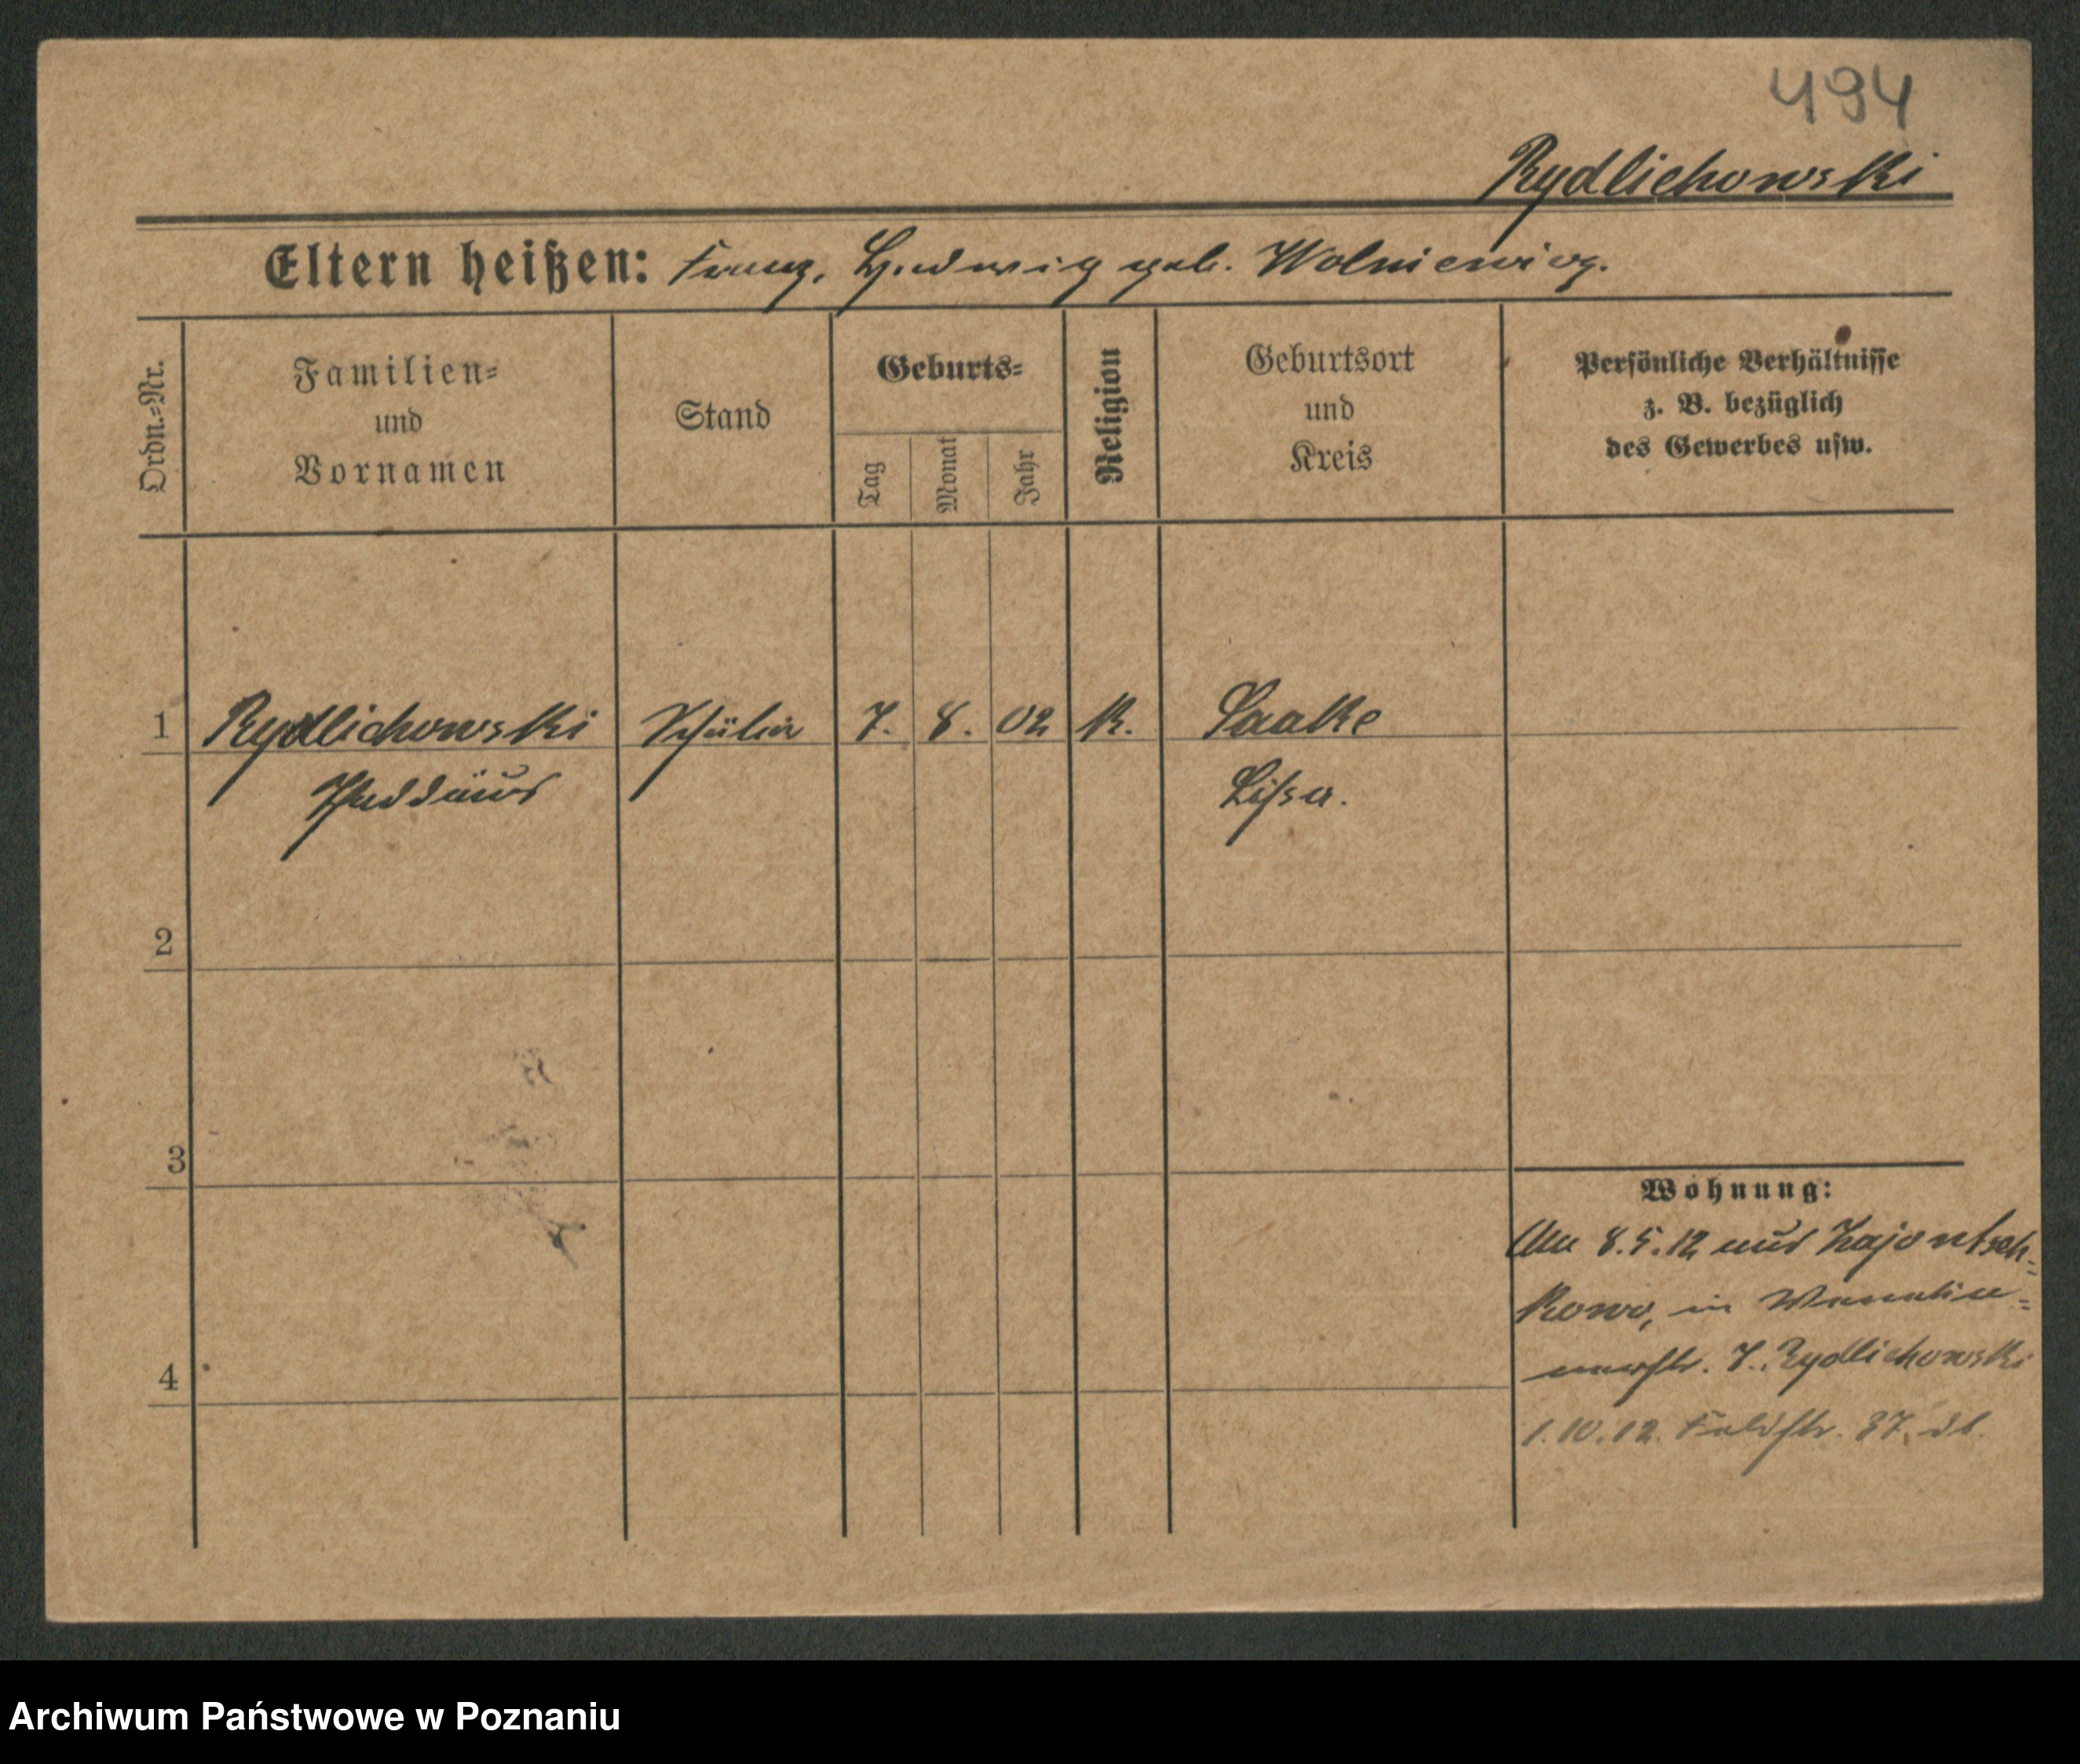 494
Rydlichowski
Eltern heißen: Franz, Hedwig geb. Wolniewicz.
Ordn.=Nr.
Familien=
und
Vornamen
Stand
Geburts=
Tag
Monat
Jahr
Religion
Geburtsort
und
Kreis
Persönliche Verhältnisse
z. B. bezüglich
des Gewerbes usw.
1 Rydlichowski Schüler 7. 8. 02 K. Laake
Thaddäus Lissa.
2
3
4
Wohnung:
Am 8.5.12 aus Zajontsch=
kowo, in
7. Rydlichowski
1.10.12. Feldstr. 37. dt.
Archiwum Państwowe w Poznaniu